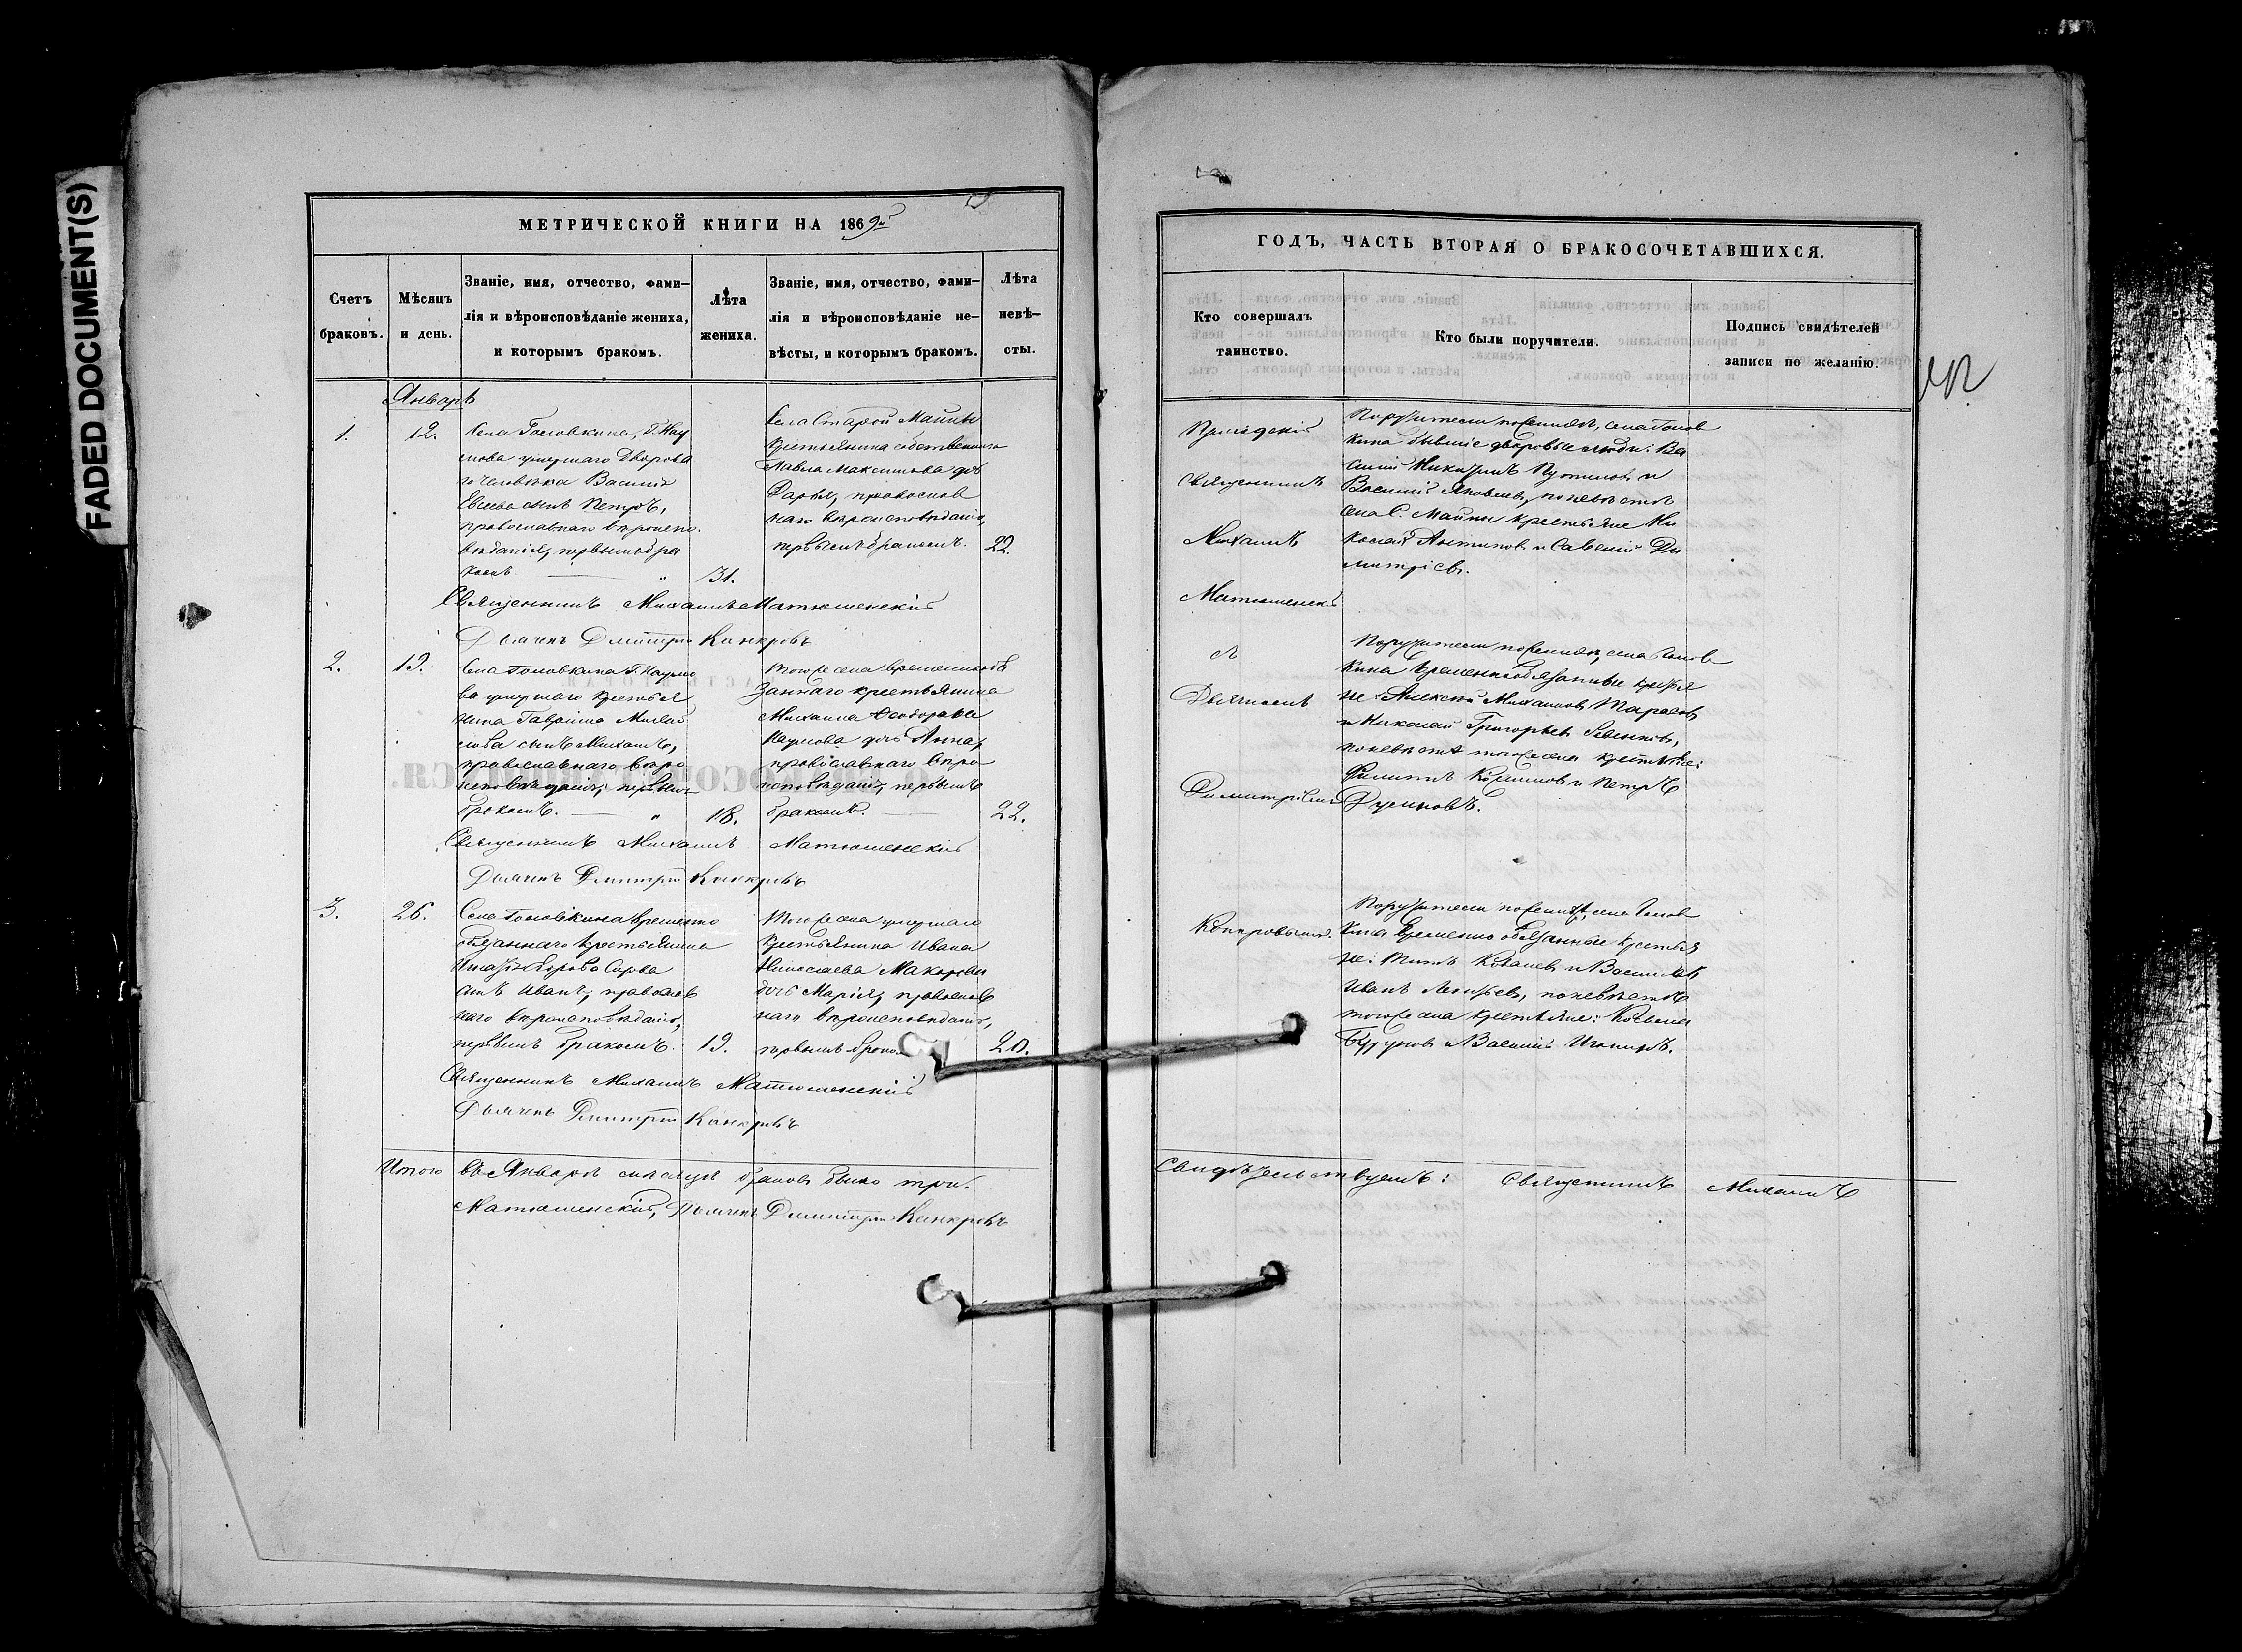 FADED DOCUMENT(S)
МЕТРИЧЕСКОЙ КНИГИ НА 1869й
Счетъ браковъ.
Мѣсяцъ и день.
Званіе, имя, отчество, фами-
лія и вѣроисповѣданіе жениха,
и которымъ бракомъ.
Лѣта
жениха.
Званіе, имя, отчество, фами-
лія и вѣроисповѣданіе не-
вѣсты, и которымъ бракомъ.
Лѣта
невѣ-
сты.
Январь
1.
12.
Села Головкина, Г. Нау
мова умершаго дворова
го человѣка Василія
сынъ Петръ,
православнаго вѣроиспо-
вѣданія, первымъ бра
комъ
31.
Села Старой Майны
крестьянина собственника
Павла Максимова дочь
Дарья, православ
наго вѣроисповѣданія,
первымъ бракомъ.
22.
Священникъ Михаилъ Матюшенскій
Дьячекъ Дмитрій Канкровъ
2.
19.
Села Головкина Г. Наумо
ва умершаго крестья
нина Гаврила Михай
лова сынъ Михаилъ,
православнаго вѣро
исповѣданія, первымъ
бракомъ.
18.
Того же села временнообя
заннаго крестьянина
Михаила Ѳеодорова
Наумова дочь Анна,
православнаго вѣро
исповѣданія, первымъ
бракомъ.
22.
Священникъ Михаилъ Матюшенскій
Дьячекъ Дмитрій Канкровъ
3.
26.
Села Головкина временно
обязаннаго крестьянина
сынъ Иванъ, православ
наго вѣроисповѣданія,
первымъ бракомъ.
19.
Того же села умершаго
крестьянина Ивана
Николаева Макарова
дочь Марія, православ
наго вѣроисповѣданія,
первымъ брако
20.
Священникъ Михаилъ Матюшенскій
Дьячекъ Дмитрій Канкровъ
Итого въ Январѣ мѣсяцѣ браковъ было три.
Матюшенскій, Дьячекъ Дмитрій Канкровъ
ГОДЪ, ЧАСТЬ ВТОРАЯ О БРАКОСОЧЕТАВШИХСЯ.
Кто совершалъ
таинство.
Кто были поручители.
Подпись свидѣтелей
записи по желанію.
Приходскій
Священникъ
Михаилъ
Матюшенскій
съ
Дьячкомъ
Димитріемъ
Канкровымъ.
Поручители по женихѣ, села Голов
кина бывшіе дворовые люди: Ва
силій Никитинъ Путиловъ и
Василій Яковлевъ, по невѣстѣ
села С. Майны крестьяне Ни
колай Антиповъ и Савелій Ди
митріевъ.
Поручители по женихѣ, села Голов
кина временнообязанные крестья
не: Алексѣй Михаиловъ Тарасовъ
и Николай Григорьевъ
по невѣстѣ того же села крестьяне:
Филиппъ и Петръ
Поручители по женихѣ, села Голов
кина временно обязанные крестья
не: Титъ Ковалевъ и Василій
Иванъ по невѣстѣ
того же села крестьяне:
и Василій
Свидѣтельствуемъ: Священникъ Михаилъ